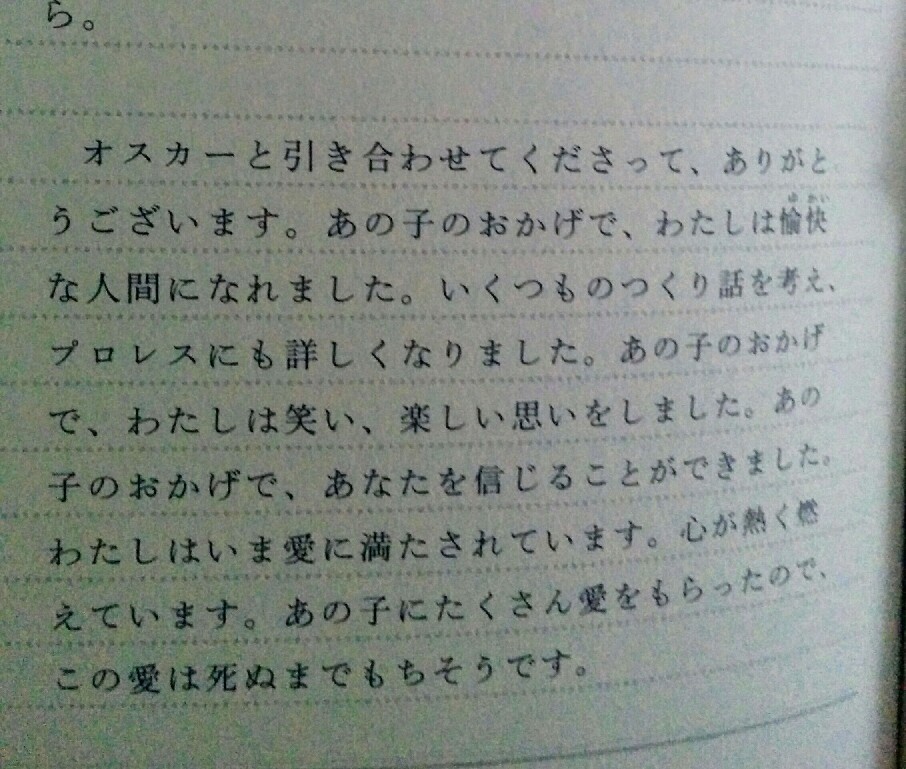 ら。
オスカーと引き合わせてくださって、ありがと
うございます。あの子のおかげで、わたしは愉快
な人間になれました。いくつものつくり話を考え、
プロレスにも詳しくなりました。あの子のおかげ
で、わたしは笑い、楽しい思いをしました。あの
子のおかげで、あなたを信じることができました。
わたしはいま愛に満たされています。心が熱く燃
えています。あの子にたくさん愛をもらったので、
この愛は死ぬまでもちそうです。